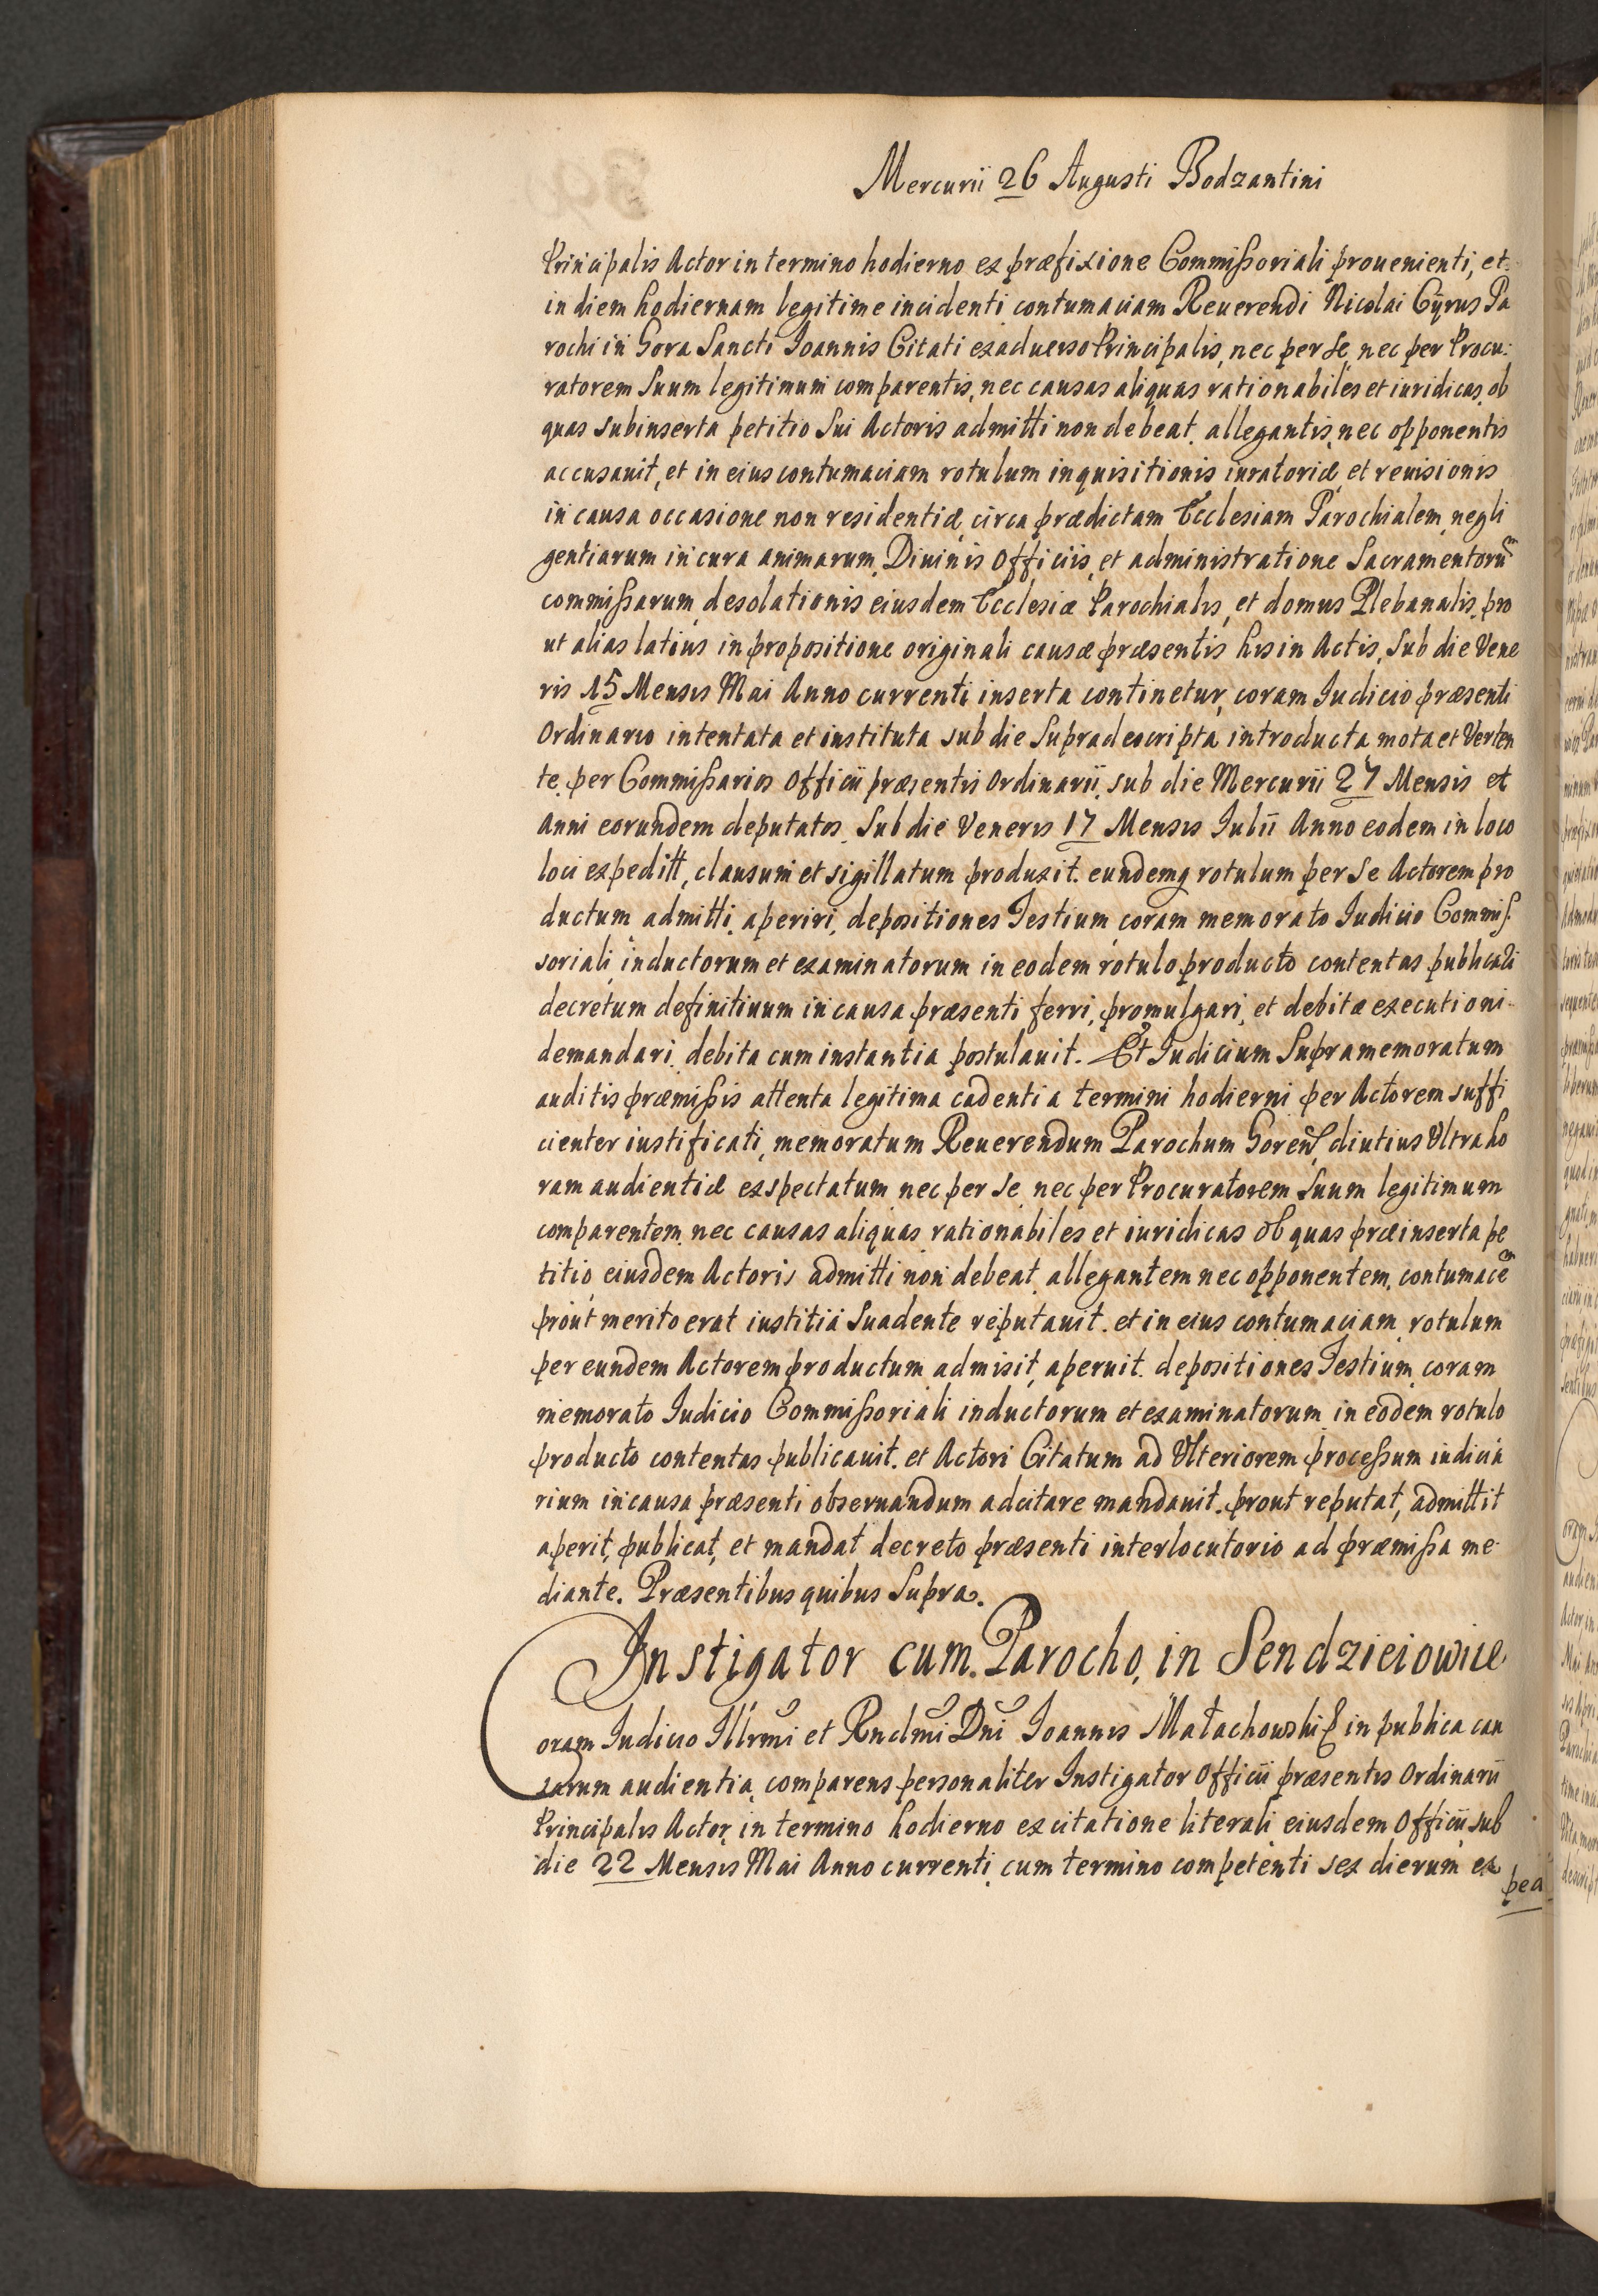 Mercurii 26 Augusti Bodzantini
Principalis Actor in termino hodierno ex præfixione Commissoriali prouenienti, et
in diem hodiernam legitime incidenti contumaciam Reuerendi Nicolai Cyrus Pa
rochi in Gora Sancti Joannis Citati ex aduerso Principalis, nec per se, nec per Procu:
ratorem Suum legitimum comparentis, nec causas aliquas rationabiles et iuridicas, ob
quas subinserta petitio Sui Actoris admitti non debeat, allegantis, nec opponentis
accusauit, et in eius contumaciam rotulum inquisitionis iuratoriæ, et reuisionis
in causa occasione non residentiæ, circa prædictam Ecclesiam Parochialem, negli
gentiarum in cura animarum, Diuinis Officiis, et administratione Sacramentorũ
commissarum, desolationis eiusdem Ecclesiæ Parochialis, et domus Plebanalis, pro
ut alias latius in propositione originali causæ præsentis his in Actis, Sub die Vene
ris 15 Mensis Mai Anno currenti inserta continetur, coram Judicio præsenti
Ordinario intentata et instituta sub die Supradescripta introducta mota et Verten
te, per Commissarios Officii præsentis Ordinarii, sub die Mercurii 27 Mensis et
Anni eorundem deputatos, Sub die Veneris 17 Mensis Julii Anno eodem in loco
loci expeditt, clausum et sigillatum produxit. eundemq rotulum per Se Actorem pro
ductum admitti, aperiri, depositiones Testium coram memorato Judicio Commis:
soriali, inductorum et examinatorum in eodem rotulo producto contentas publicari
decretum definitiuum in causa præsenti ferri, promulgari, et debitæ executioni
demandari, debita cum instantia postulauit. Et Judicium Supramemoratum
auditis præmissis attenta legitima cadentia termini hodierni per Actorem suffi
cienter iustificati, memoratum Reuerendum Parochum Gorens diutius Vltra ho
ram audientiæ exspectatum, nec per se, nec per Procuratorem Suum legitimum
comparentem, nec causas aliquas rationabiles et iuridicas ob quas præinserta pe
titio eiusdem Actoris admitti non debeat, allegantem nec opponentem, contumacẽ
prout merito erat iustitia Suadente reputauit. et in eius contumaciam rotulum
per eundem Actorem productum admisit, aperuit. depositiones Testium, coram
memorato Judicio Commissoriali inductorum et examinatorum in eodem rotulo
producto contentas publicauit. et Actori Citatum ad Vlteriorem processum iudicia
rium in causa præsenti obseruandum adcitare mandauit. prout reputat, admittit
aperit, publicat, et mandat decreto præsenti interlocutorio ad præmissa me
diante. Præsentibus quibus Supra.
Instigator cum Parocho, in Sendzieiowice
Coram Judicio Illrmi et Rndmi Dni Joannis Małachowski in publica cau
sarum audientia, comparens personaliter Instigator Officii præsentis Ordinarii
Principalis Actor, in termino hodierno ex citatione literali eiusdem Officii sub
die 22 Mensis Mai Anno currenti, cum termino competenti sex dierum ex
pea